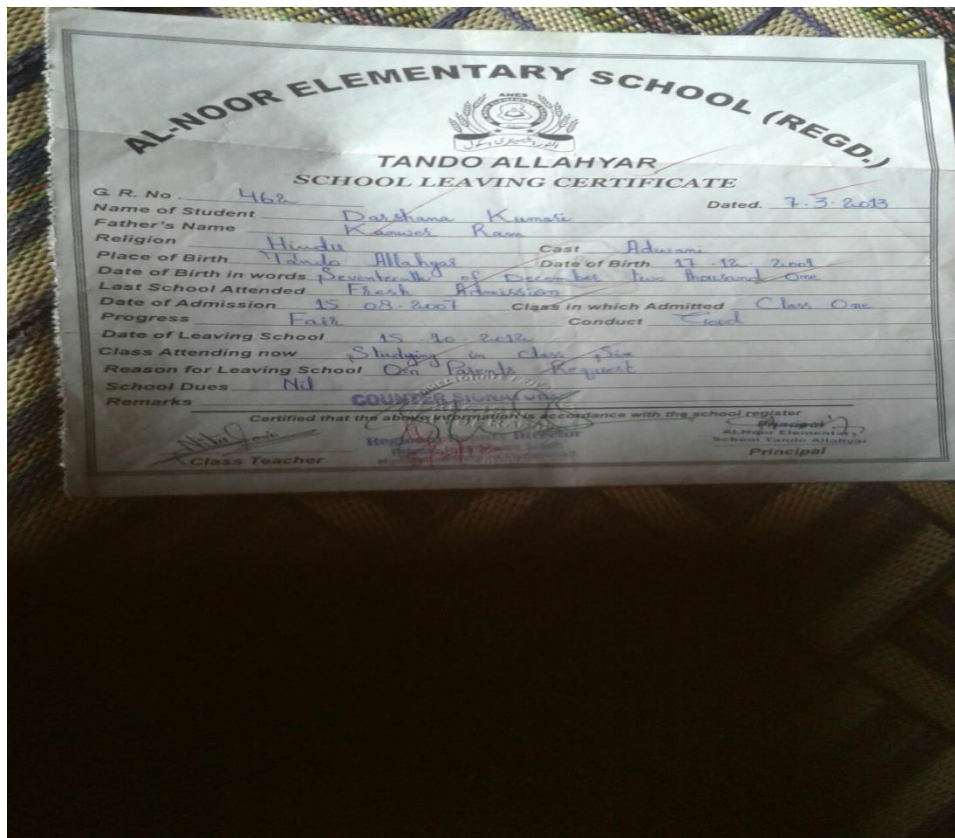 AL-NOOR ELEMENTARY SCHOOL (REGD.)
ANES
TANDO ALLAHYAR
SCHOOL LEAVING CERTIFICATE
G. R. No. 462 Dated. 7.3.2013
Name of Student Darshana Kumari
Father's Name Kanwer Ram
Religion Hindu Cast Adwani
Place of Birth Tando Allahyar Date of Birth 17.12.2001
Date of Birth in words Seventeenth of December two thousand One
Last School Attended Fresh Admission
Date of Admission 15.08.2007 Class in which Admitted Class One
Progress Fair Conduct Good
Date of Leaving School 15.10.2012
Class Attending now Studying in class Six
Reason for Leaving School On Parents Request
School Dues Nil
Remarks COUNTER SIGNATURE
Certified that the above information is accordance with the school register
Principal
AL-Noor Elementary
School Tando Allahyar
Class Teacher Principal